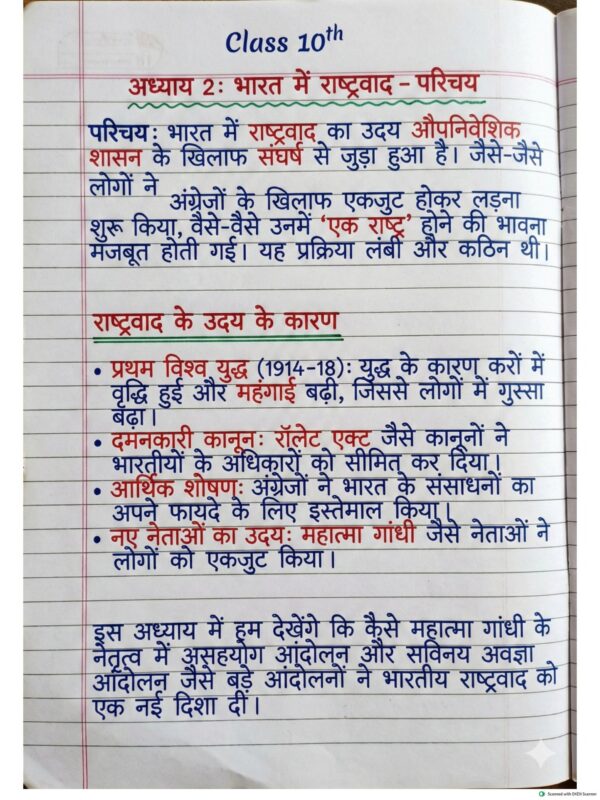 Class 10th
अध्याय 2: भारत में राष्ट्रवाद – परिचय
परिचय: भारत में राष्ट्रवाद का उदय औपनिवेशिक
शासन के खिलाफ संघर्ष से जुड़ा हुआ है। जैसे-जैसे
लोगों ने
अंग्रेजों के खिलाफ एकजुट होकर लड़ना
शुरू किया, वैसे-वैसे उनमें ‘एक राष्ट्र’ होने की भावना
मजबूत होती गई। यह प्रक्रिया लंबी और कठिन थी।
राष्ट्रवाद के उदय के कारण
• प्रथम विश्व युद्ध (1914-18): युद्ध के कारण करों में
वृद्धि हुई और महंगाई बढ़ी, जिससे लोगों में गुस्सा
बढ़ा।
• दमनकारी कानून: रॉलेट एक्ट जैसे कानूनों ने
भारतीयों के अधिकारों को सीमित कर दिया।
• आर्थिक शोषण: अंग्रेजों ने भारत के संसाधनों का
अपने फायदे के लिए इस्तेमाल किया।
• नए नेताओं का उदय: महात्मा गांधी जैसे नेताओं ने
लोगों को एकजुट किया।
इस अध्याय में हम देखेंगे कि कैसे महात्मा गांधी के
नेतृत्व में असहयोग आंदोलन और सविनय अवज्ञा
आंदोलन जैसे बड़े आंदोलनों ने भारतीय राष्ट्रवाद को
एक नई दिशा दी।